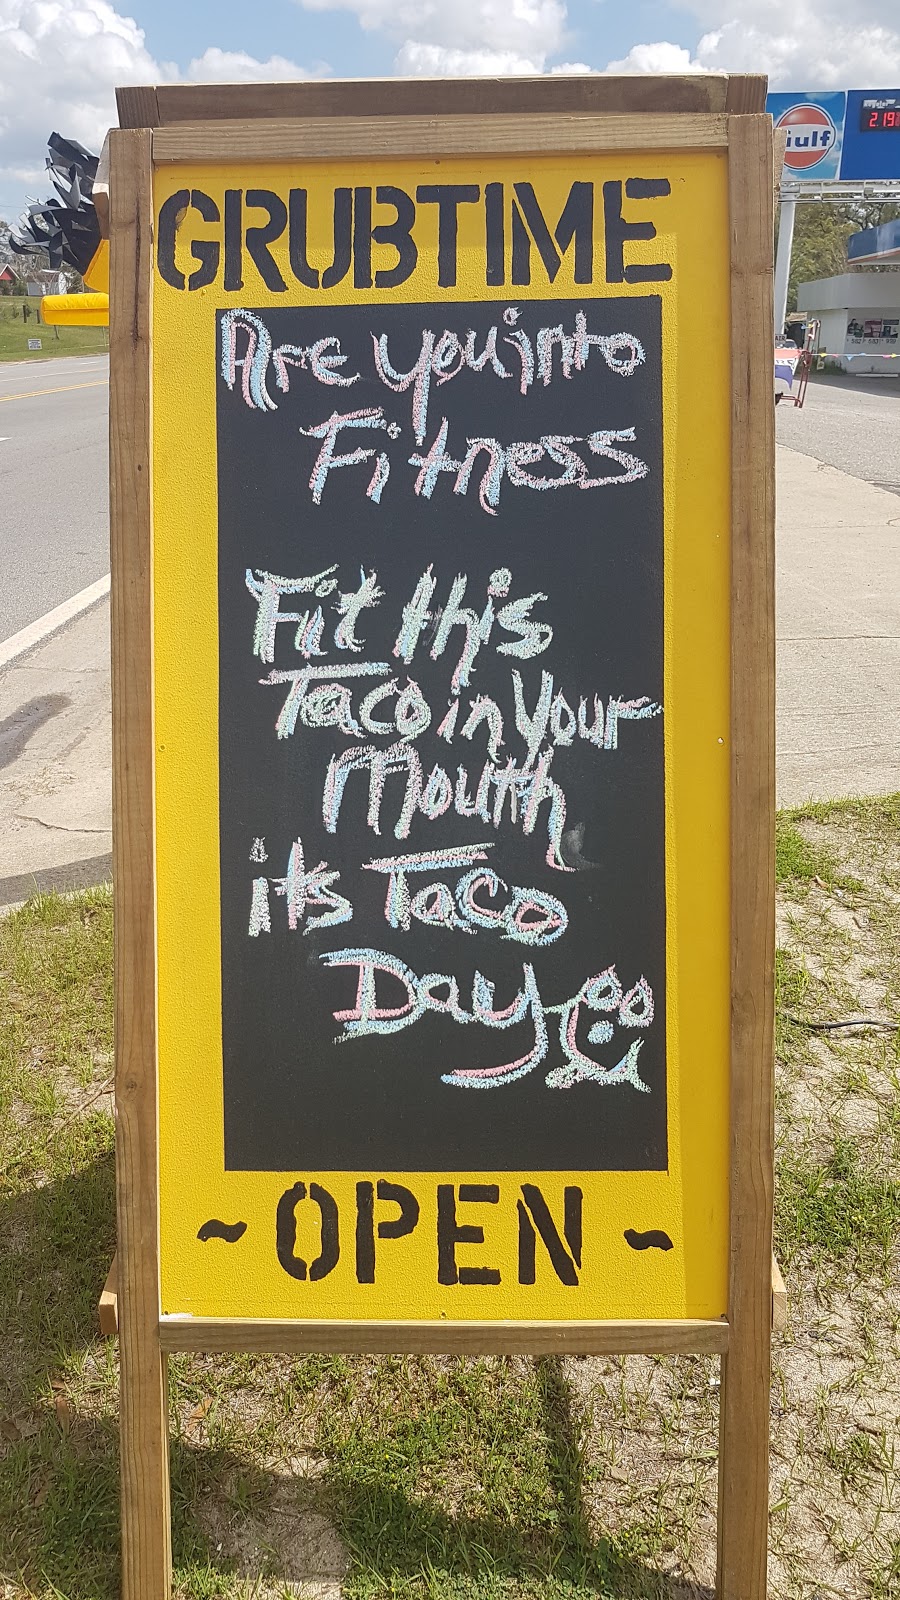 GRUBTIME
Are you into
Fitness
Fit this
Taco in your
Mouth
it's Taco
Day
~ OPEN ~
Gulf
2.19